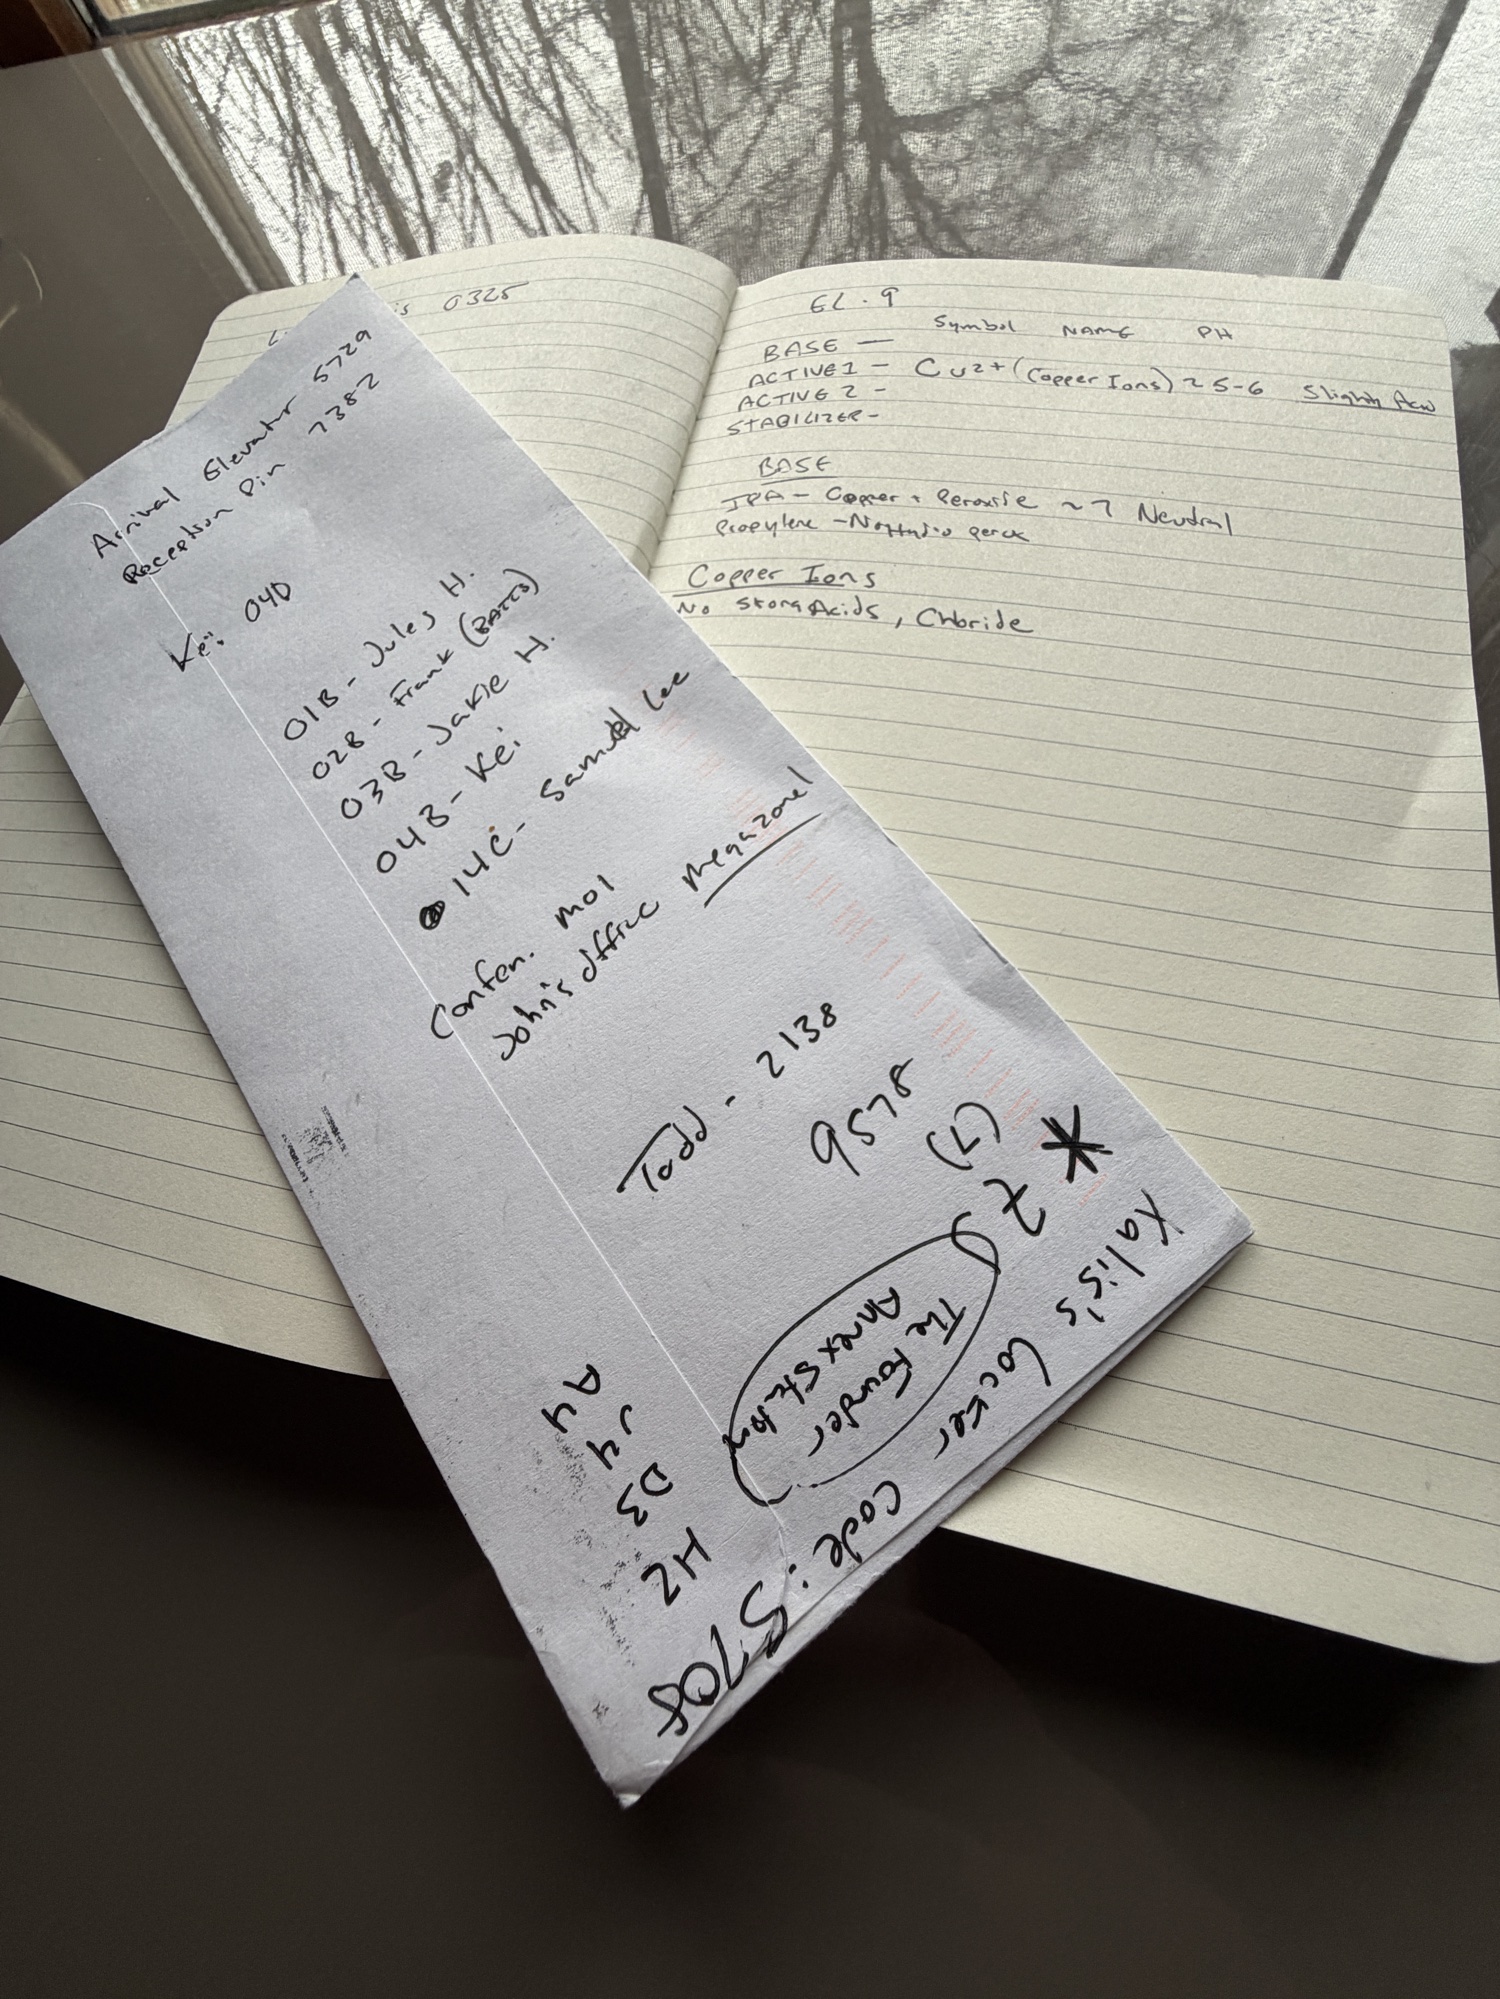 0325
Arrival Elevator 5729
Reception Pin 7382
Kei 04D
01B - Jules H.
02B - Frank (BATES)
03B - Jakie H.
04B - Kei
14C - Samuel Lee
Confer. M01
John's Office Megazone1
Todd - 2138
9578
7 (L)
The Founder
Annex Station
A4
J4
D3
H2
Kalis's Locker Code: 5708
GL.9
Symbol NAME PH
BASE —
ACTIVE 1 - Cu2+ (Copper Ions) ~ 5-6 Slightly
ACTIVE 2 -
STABILIZER -
BASE
IPA - Copper + Peroxide ~7 Neutral
Propylene -
Copper Ions
No Strong Acids, Chloride